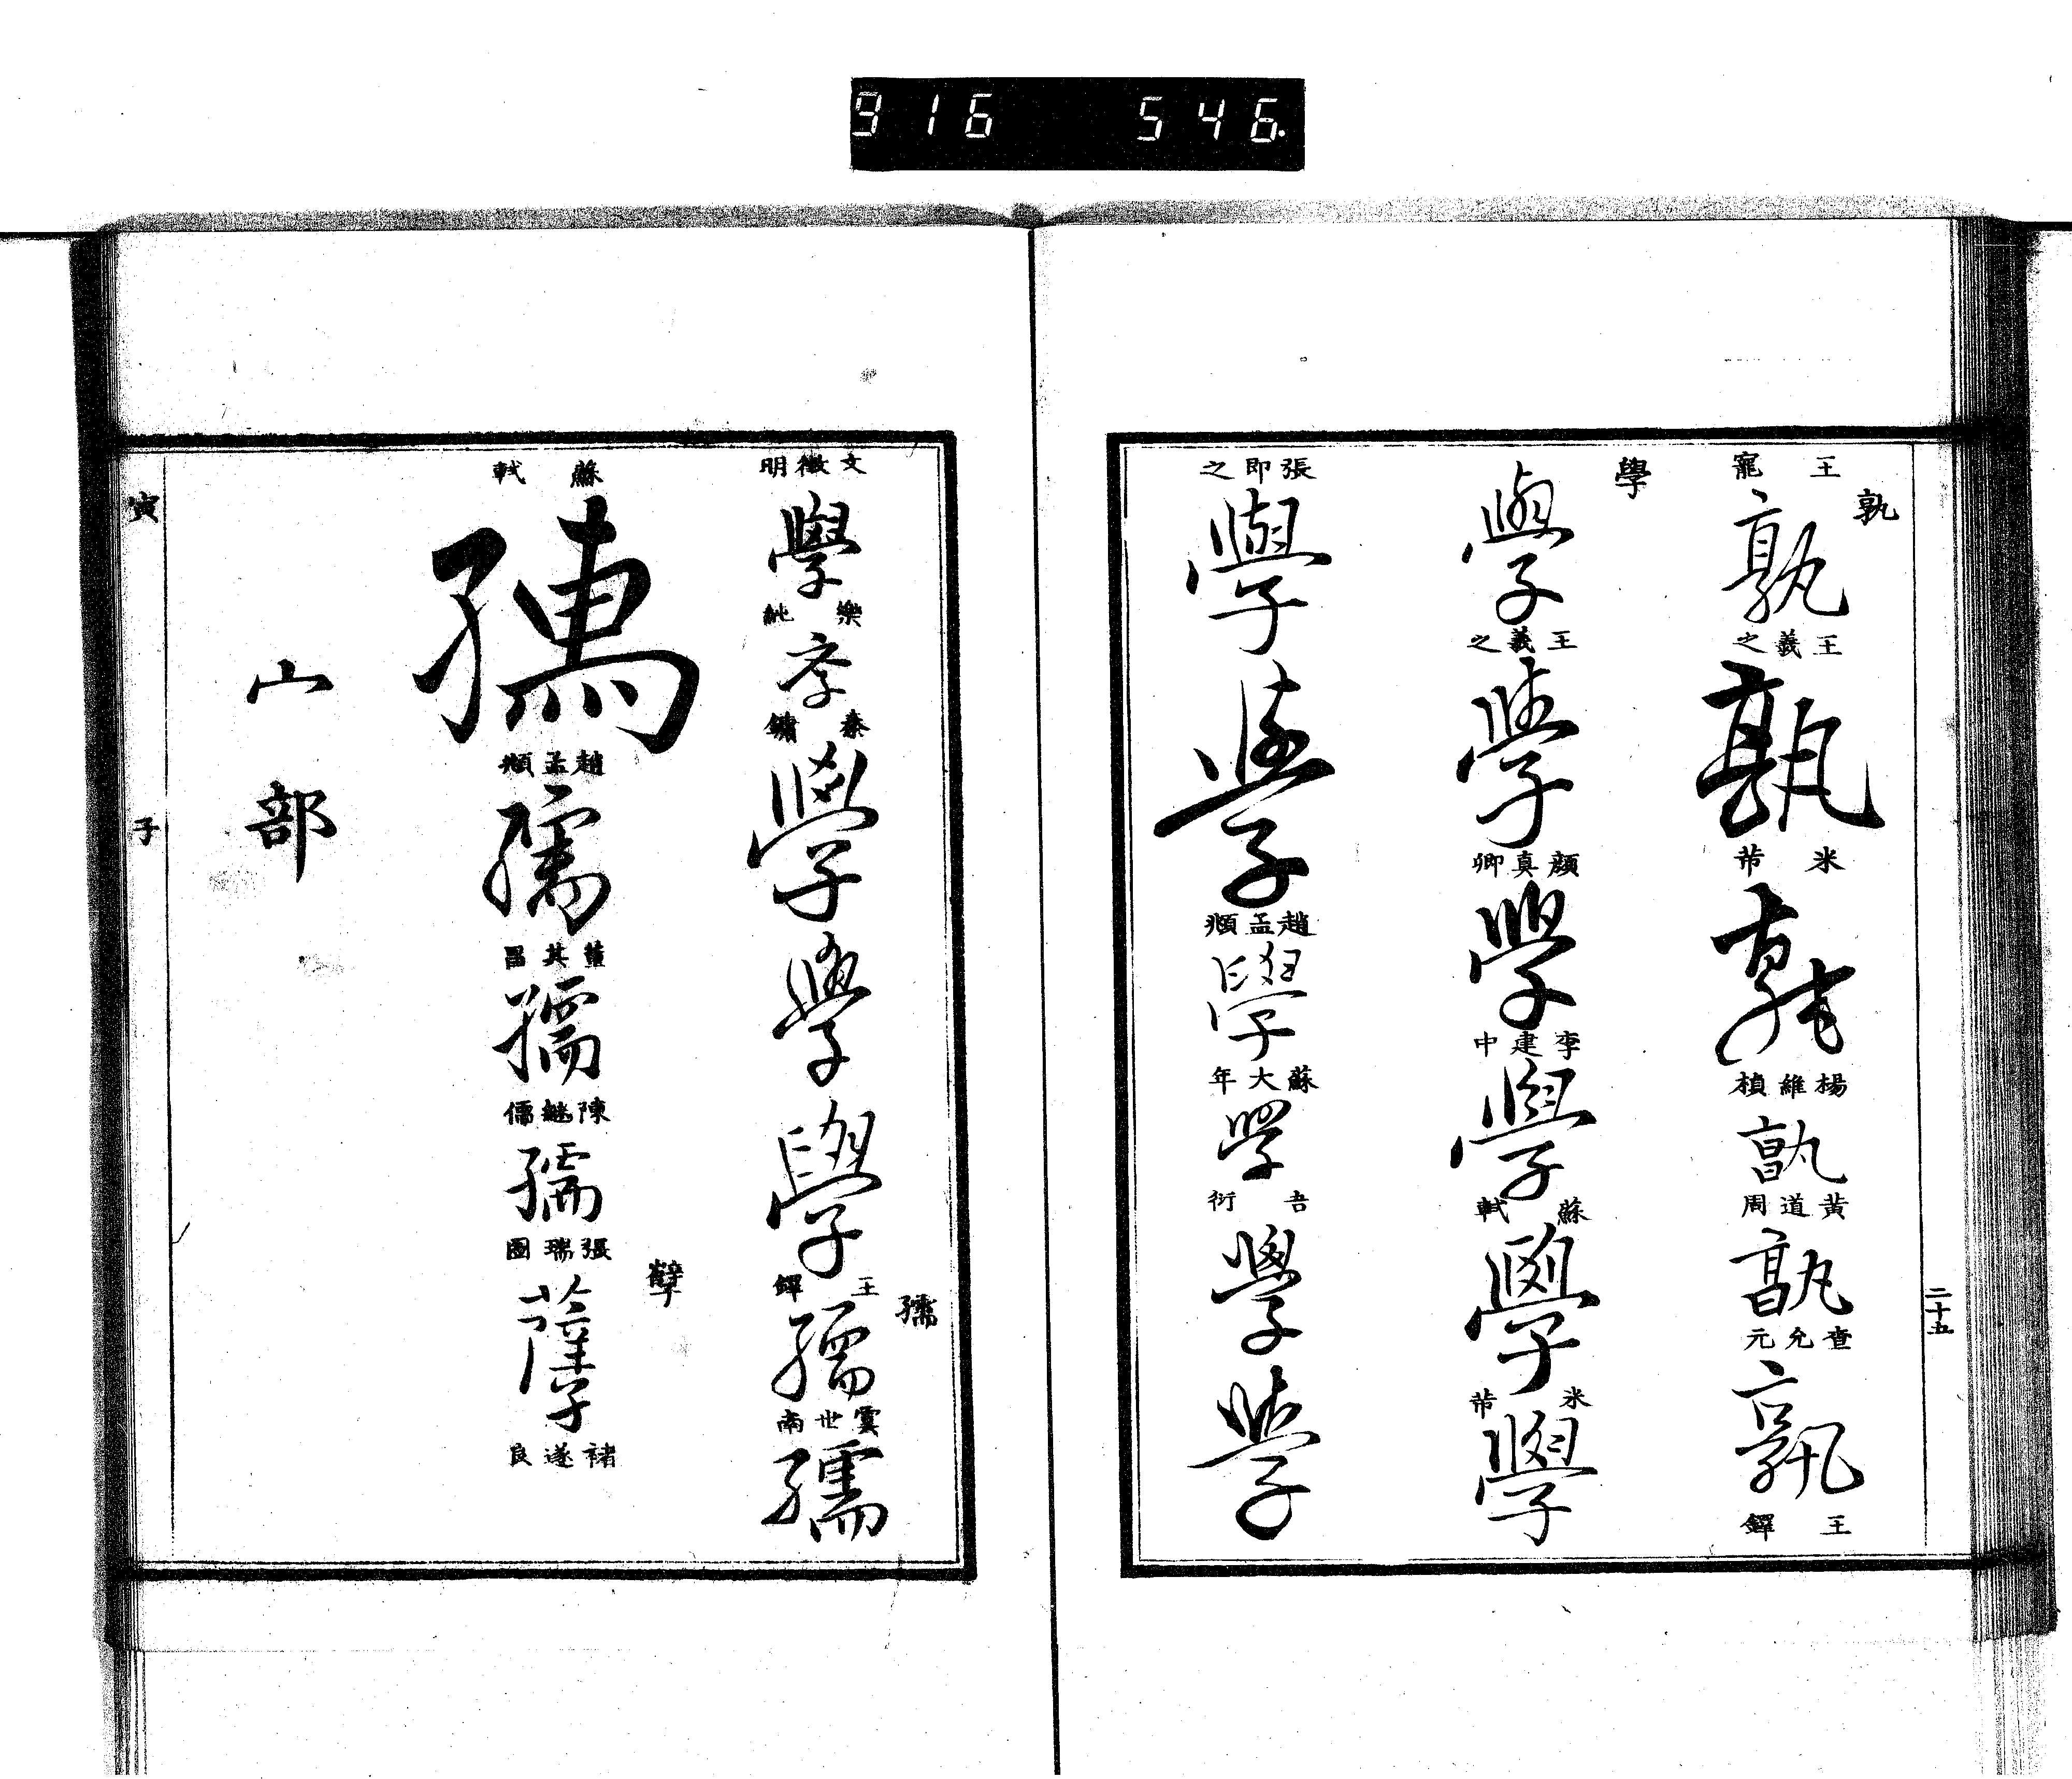 916 546
二十五
孰
王寵 孰 王羲之 孰 米芾 孰 楊維楨 孰 黃道周 孰 查允元 孰 王鐸
學
學 王羲之 學 顏真卿 學 李建中 學 蘇軾 學 米芾 學
張即之 學 學 趙孟頫 學 蘇大年 學 吾衍 學 學
孺
文徵明 學 樂純 斈 秦鏞 學 學 學 王鐸 孺 虞世南 孺
孽
蘇軾 孺 趙孟頫 孺 董其昌 孺 陳繼儒 孺 張瑞圖 孽 褚遂良
山部
寅 子